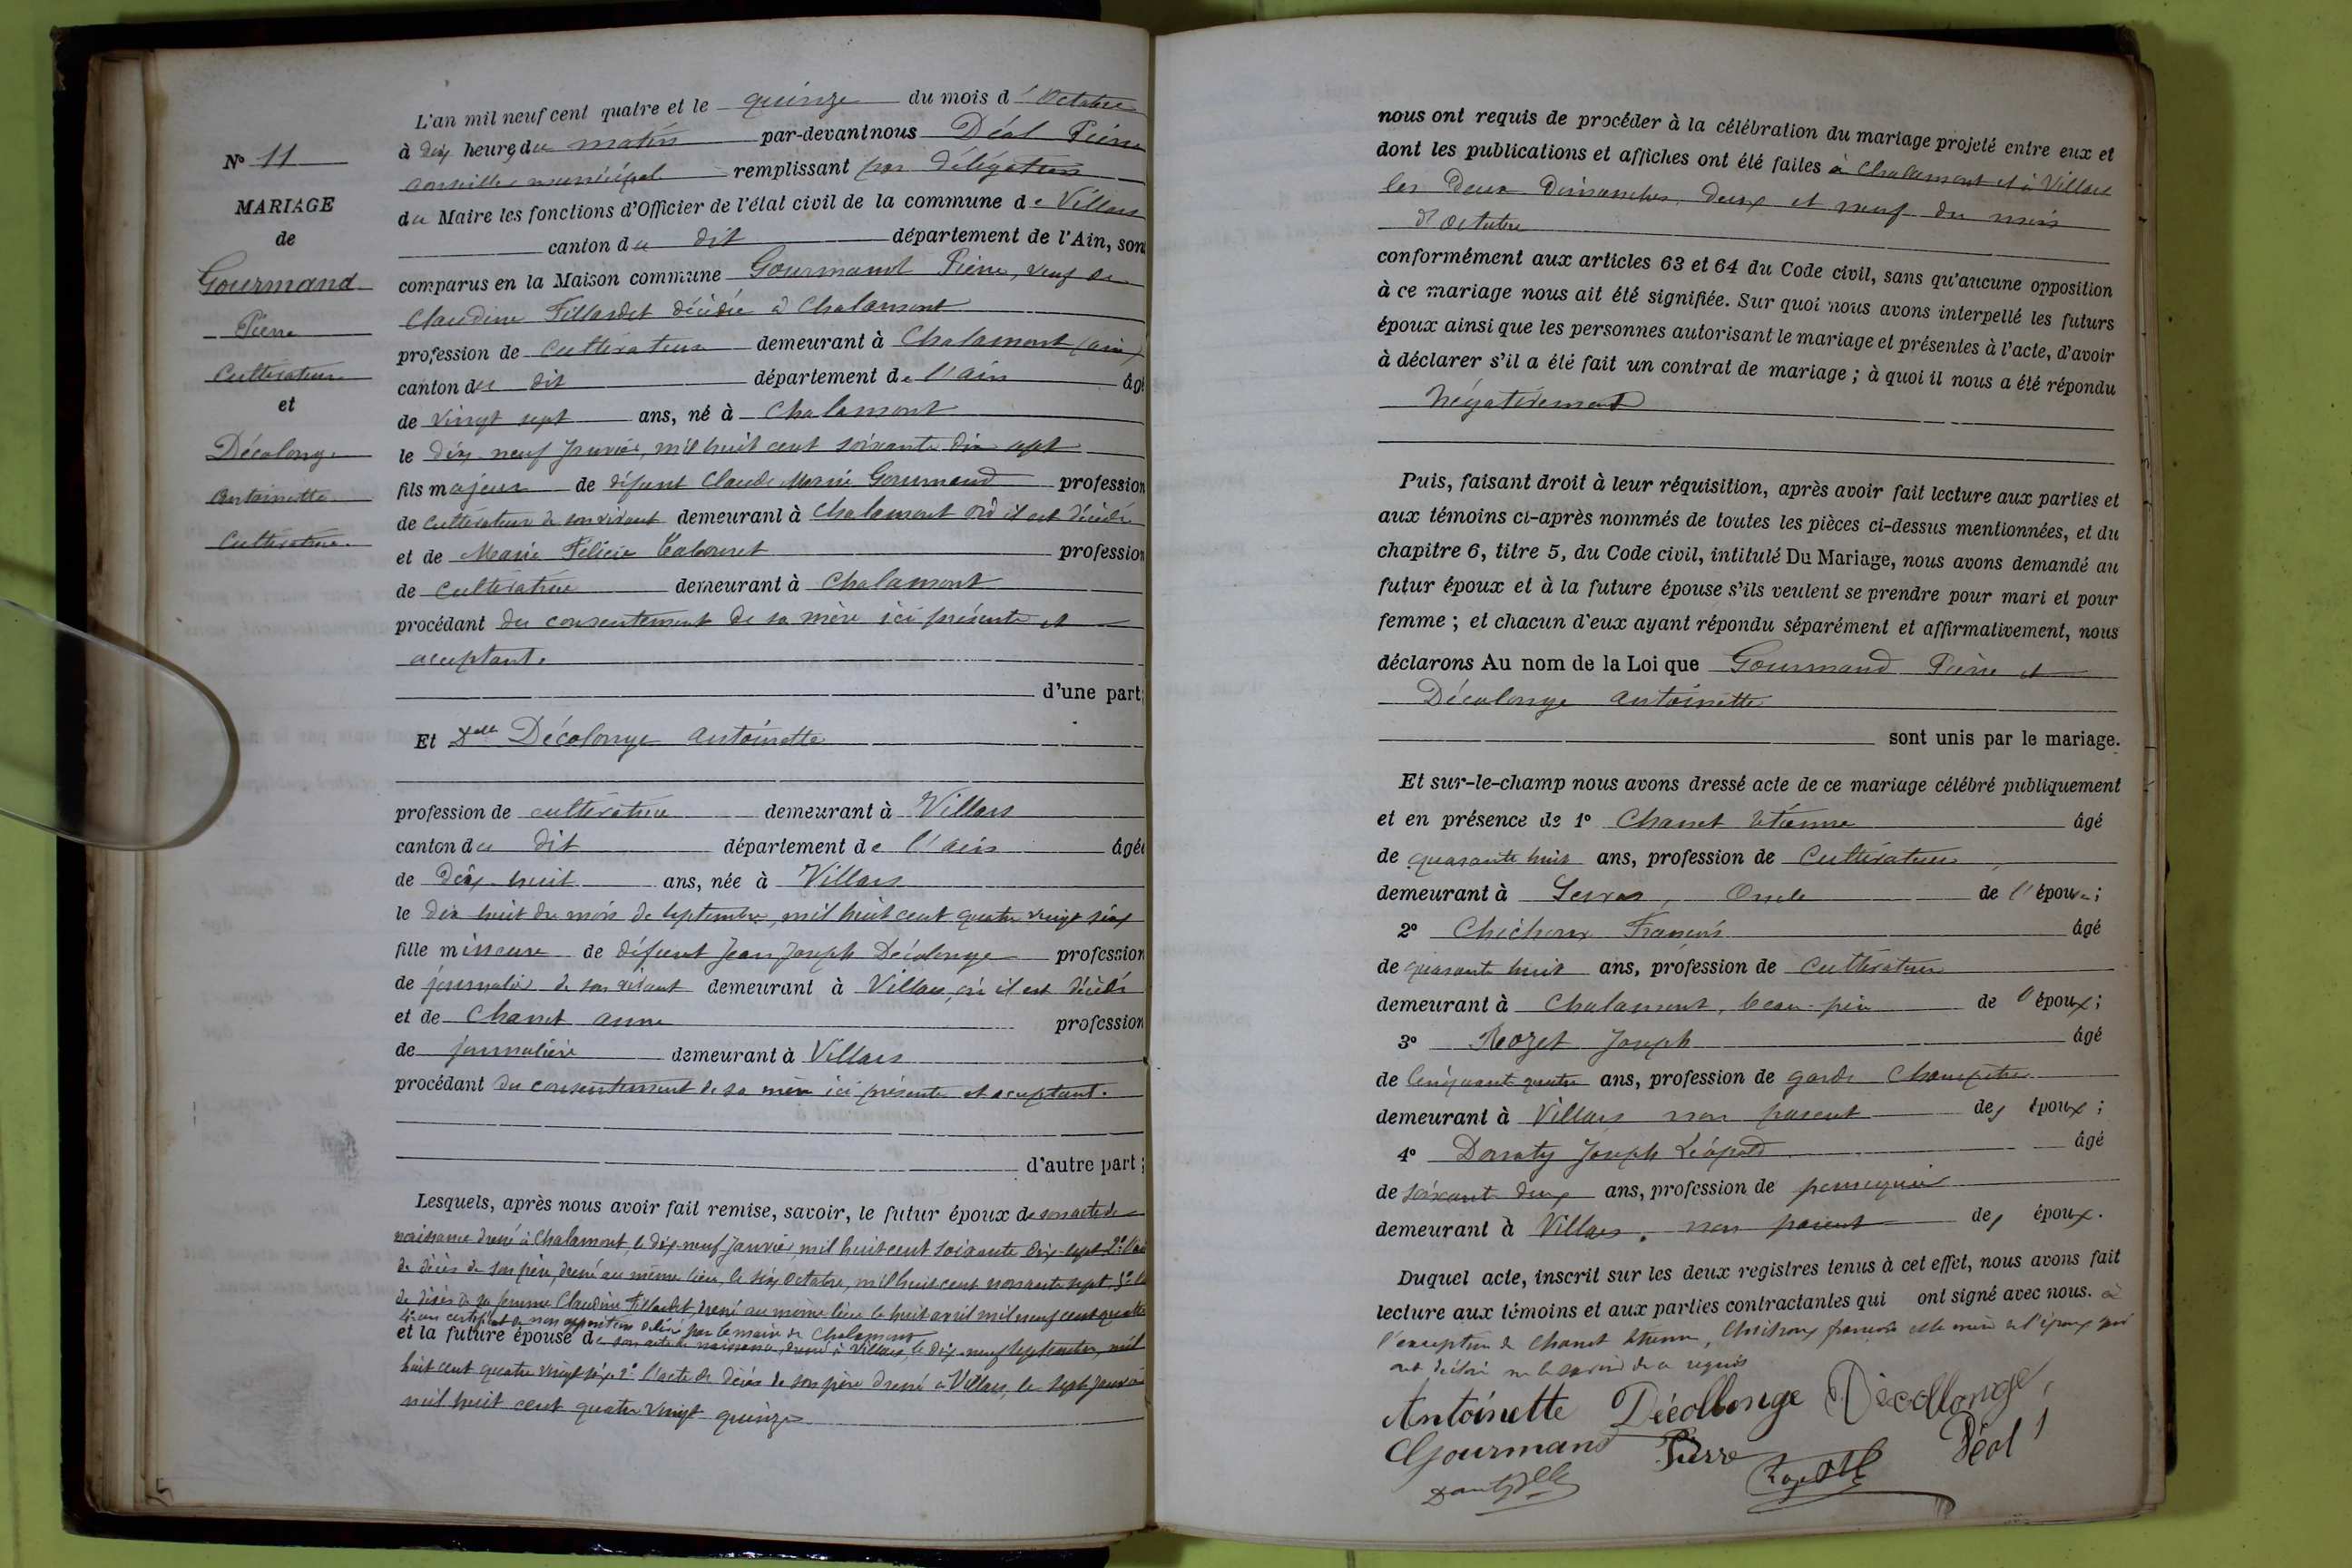 N° 11
MARIAGE
de
Gourmand
Pierre
Cultivateur
et
Décolonge
Antoinette
Cultivatrice
L'an mil neuf cent quatre et le quinze du mois d'Octobre
à dix heures du matin par-devant nous Déal Pierre
conseiller municipal remplissant par délégation
du Maire les fonctions d'Officier de l'état civil de la commune de Villars
canton du dit département de l'Ain, sont
comparus en la Maison commune Gourmand Pierre, veuf de
Claudine Fillardet décédée à Chalamont
profession de cultivateur demeurant à Chalamont (ain)
canton du dit département de l'ain âgé
de vingt sept ans, né à Chalamont
le dix neuf Janvier, mil huit cent soixante dix sept
fils majeur de défunt Claude Marie Gourmand profession
de cultivateur de son vivant demeurant à Chalamont où il est décédé
et de Marie Félicie profession
de cultivatrice demeurant à Chalamont
procédant du consentement de sa mère ici présente et
acceptant.
d'une part;
Et Delle Décolonge Antoinette
profession de cultivatrice demeurant à Villars
canton du dit département de l'ain âgée
de dix-huit ans, née à Villars
le dix huit du mois de Septembre, mil huit cent quatre vingt six
fille mineure de défunt Jean Joseph Décolonge profession
de journalier de son vivant demeurant à Villars, où il est décédé
et de Chanet anne profession
de journalière demeurant à Villars
procédant du consentement de sa mère ici présente et acceptant.
d'autre part;
Lesquels, après nous avoir fait remise, savoir, le futur époux de son acte de
naissance dressé à Chalamont, le dix-neuf Janvier, mil huit cent soixante dix-sept 2° l'acte
de décès de son père, dressé au même lieu, le six Octobre, mil huit cent nonante sept, 3° le
de décès de sa femme Claudine Fillardet dressé au même lieu le huit avril mil neuf cent quatre
un certificat de non opposition délivré par le maire de Chalamont
et la future épouse de son acte de naissance, dressé à Villars, le dix-neuf Septembre, mil
huit cent quatre vingt six, 2° l'acte de décès de son père dressé à Villars, le Sept Janvier
mil huit cent quatre vingt quinze
nous ont requis de procéder à la célébration du mariage projeté entre eux et
dont les publications et affiches ont été faites à Chalamont et à Villars
les Deux Dimanches, deux et neuf du mois
d'Octobre
conformément aux articles 63 et 64 du Code civil, sans qu'aucune opposition
à ce mariage nous ait été signifiée. Sur quoi nous avons interpellé les futurs
époux ainsi que les personnes autorisant le mariage et présentes à l'acte, d'avoir
à déclarer s'il a été fait un contrat de mariage ; à quoi il nous a été répondu
Négativement
Puis, faisant droit à leur réquisition, après avoir fait lecture aux parties et
aux témoins ci-après nommés de toutes les pièces ci-dessus mentionnées, et du
chapitre 6, titre 5, du Code civil, intitulé Du Mariage, nous avons demandé au
futur époux et à la future épouse s'ils veulent se prendre pour mari et pour
femme ; et chacun d'eux ayant répondu séparément et affirmativement, nous
déclarons Au nom de la Loi que Gourmand Pierre et
Décolonge Antoinette
sont unis par le mariage.
Et sur-le-champ nous avons dressé acte de ce mariage célébré publiquement
et en présence de 1° Chanet Etienne âgé
de quarante huit ans, profession de Cultivateur
demeurant à Servas, Oncle de l'épouse;
2° Chicheux François âgé
de quarante huit ans, profession de cultivateur
demeurant à Chalamont, beau-père de l'époux;
3° Rozet Joseph âgé
de Cinquante quatre ans, profession de garde Champêtre
demeurant à Villars non parent des époux;
4° Donaty Joseph Léopold âgé
de soixante deux ans, profession de perruquier
demeurant à Villars, non parent des époux.
Duquel acte, inscrit sur les deux registres tenus à cet effet, nous avons fait
lecture aux témoins et aux parties contractantes qui ont signé avec nous. à
l'exception de Chanet Etienne, Chicheux françois et la mère de l'époux qui
ont déclaré ne le savoir de ce requis
Antoinette Décollonge Décollonge
Gourmand Pierre Déal